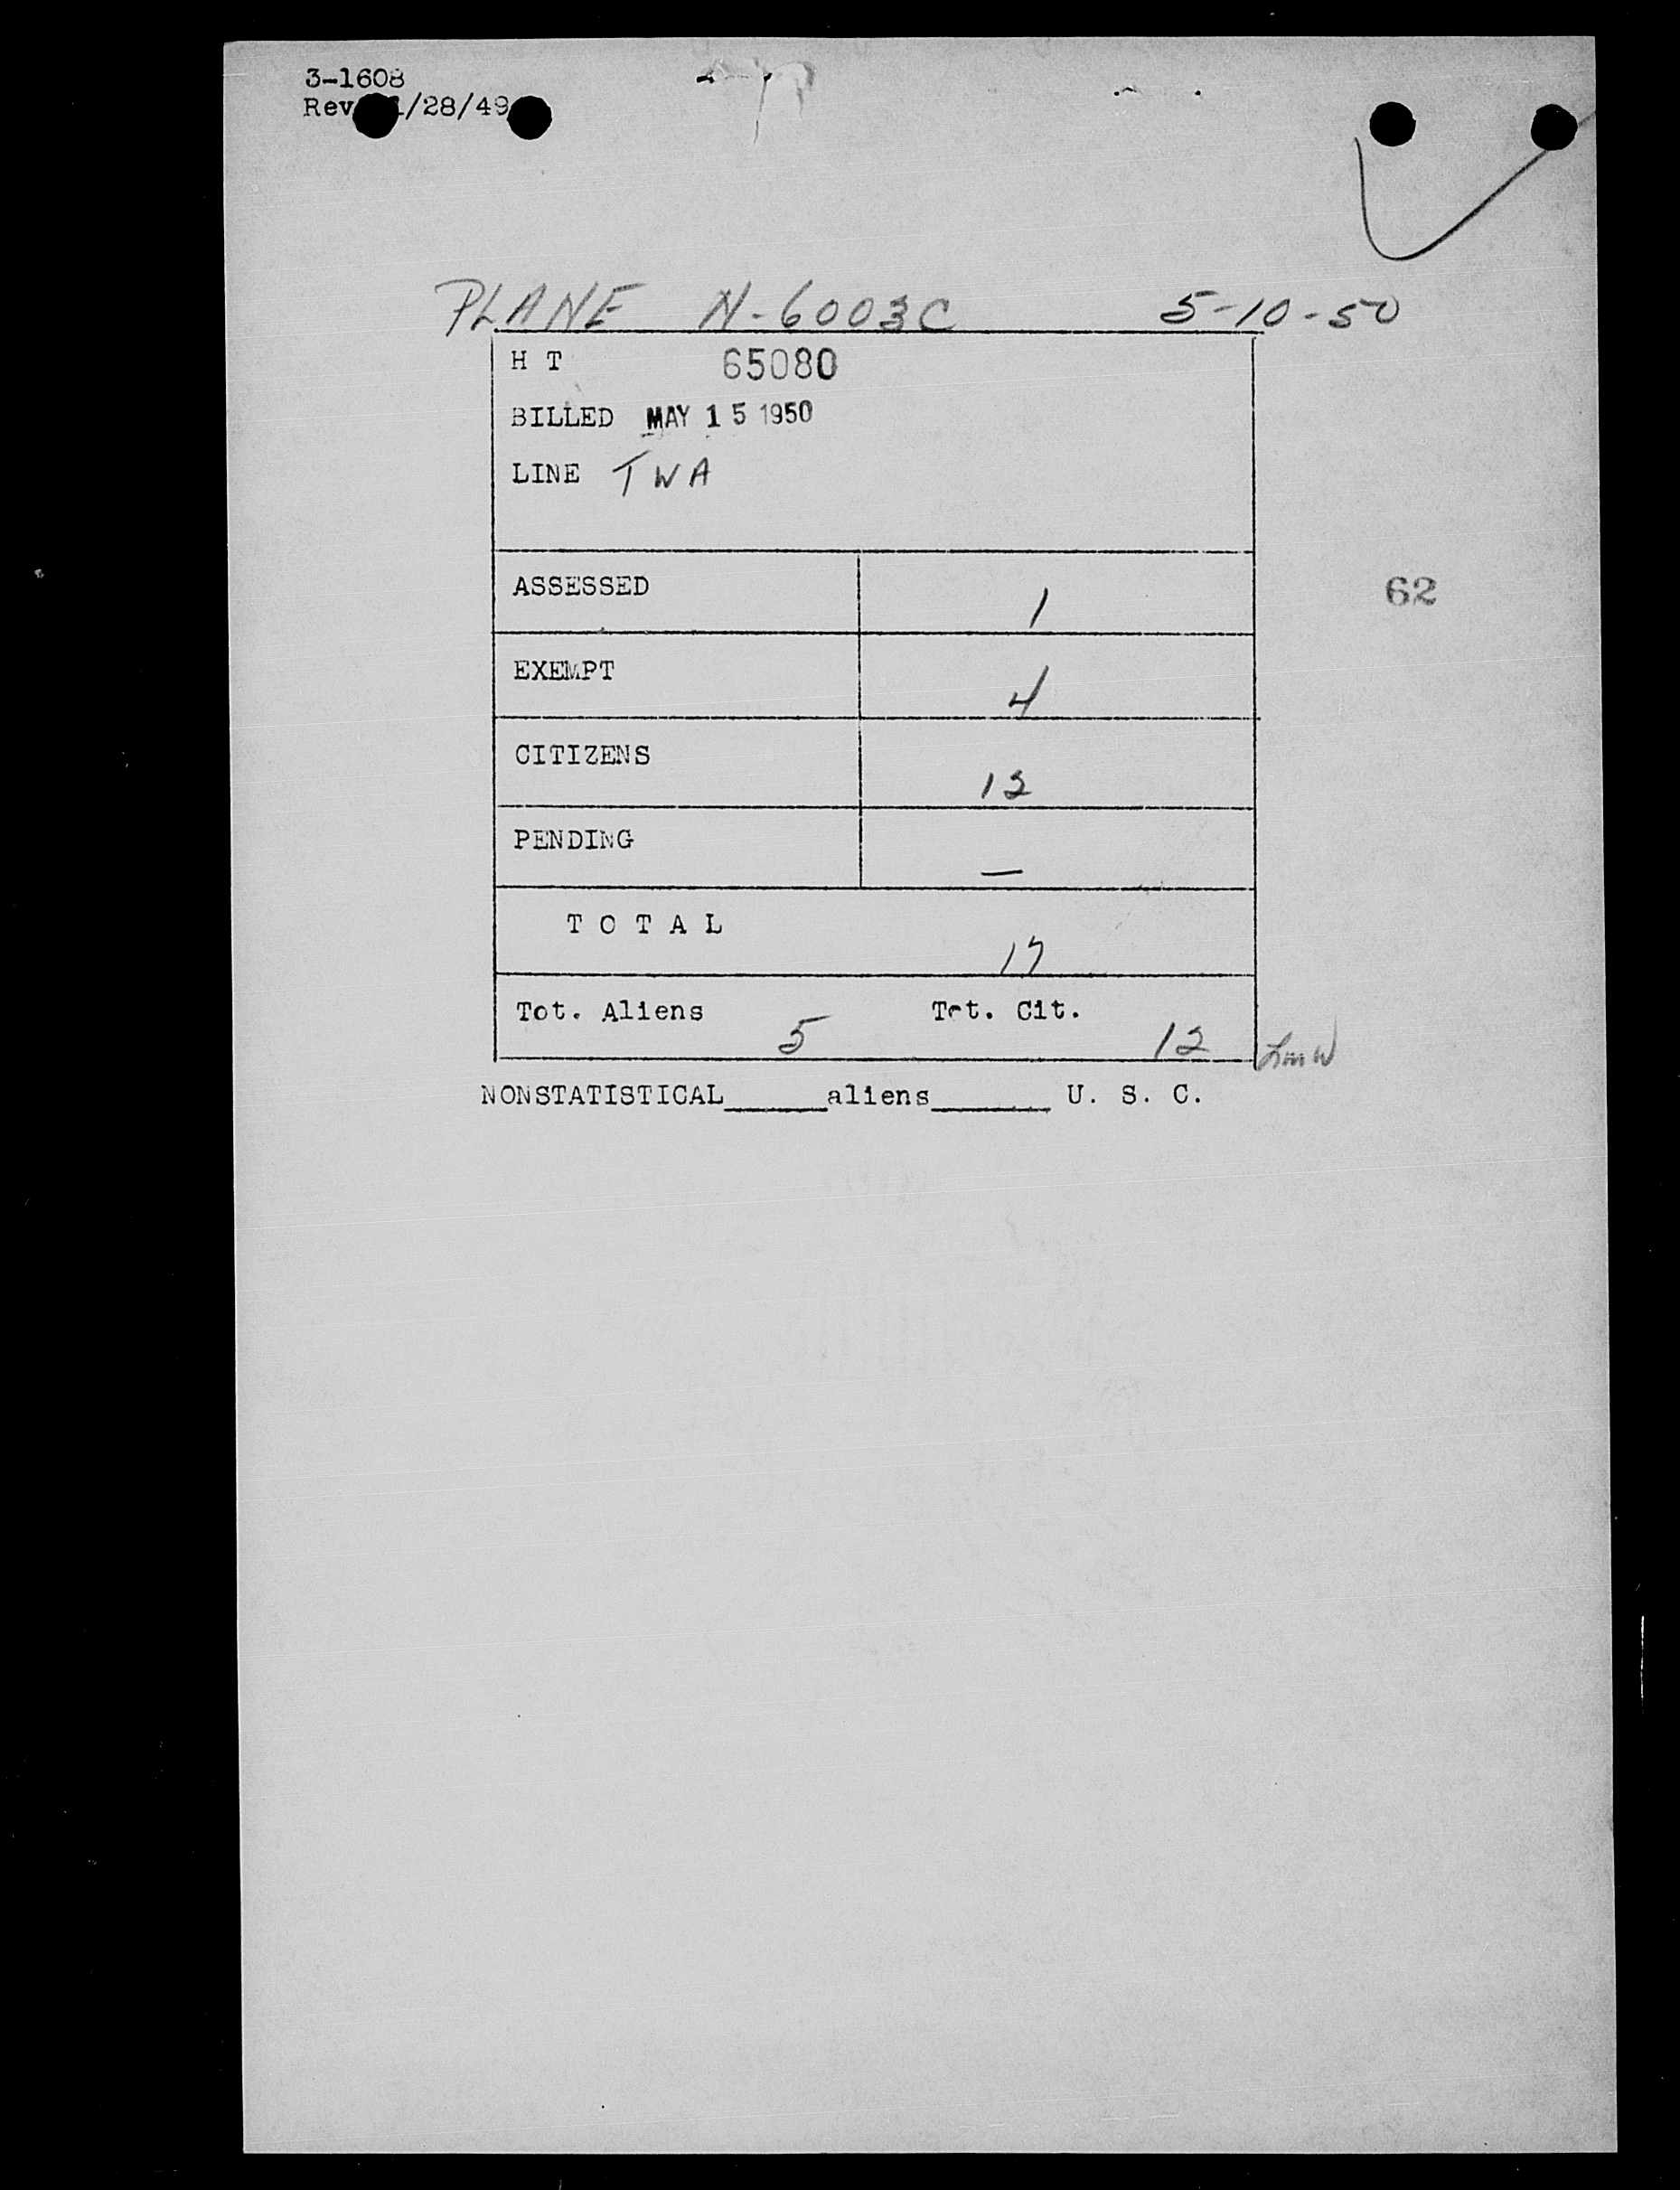 3-1608
Rev. 1/28/49
PLANE N-6003C 5-10-50
H T 65080
BILLED MAY 15 1950
LINE TWA
ASSESSED 1
62
EXEMPT 4
CITIZENS 12
PENDING —
T O T A L 17
Tot. Aliens 5 Tot. Cit. 12
NONSTATISTICAL______aliens_______ U. S. C.